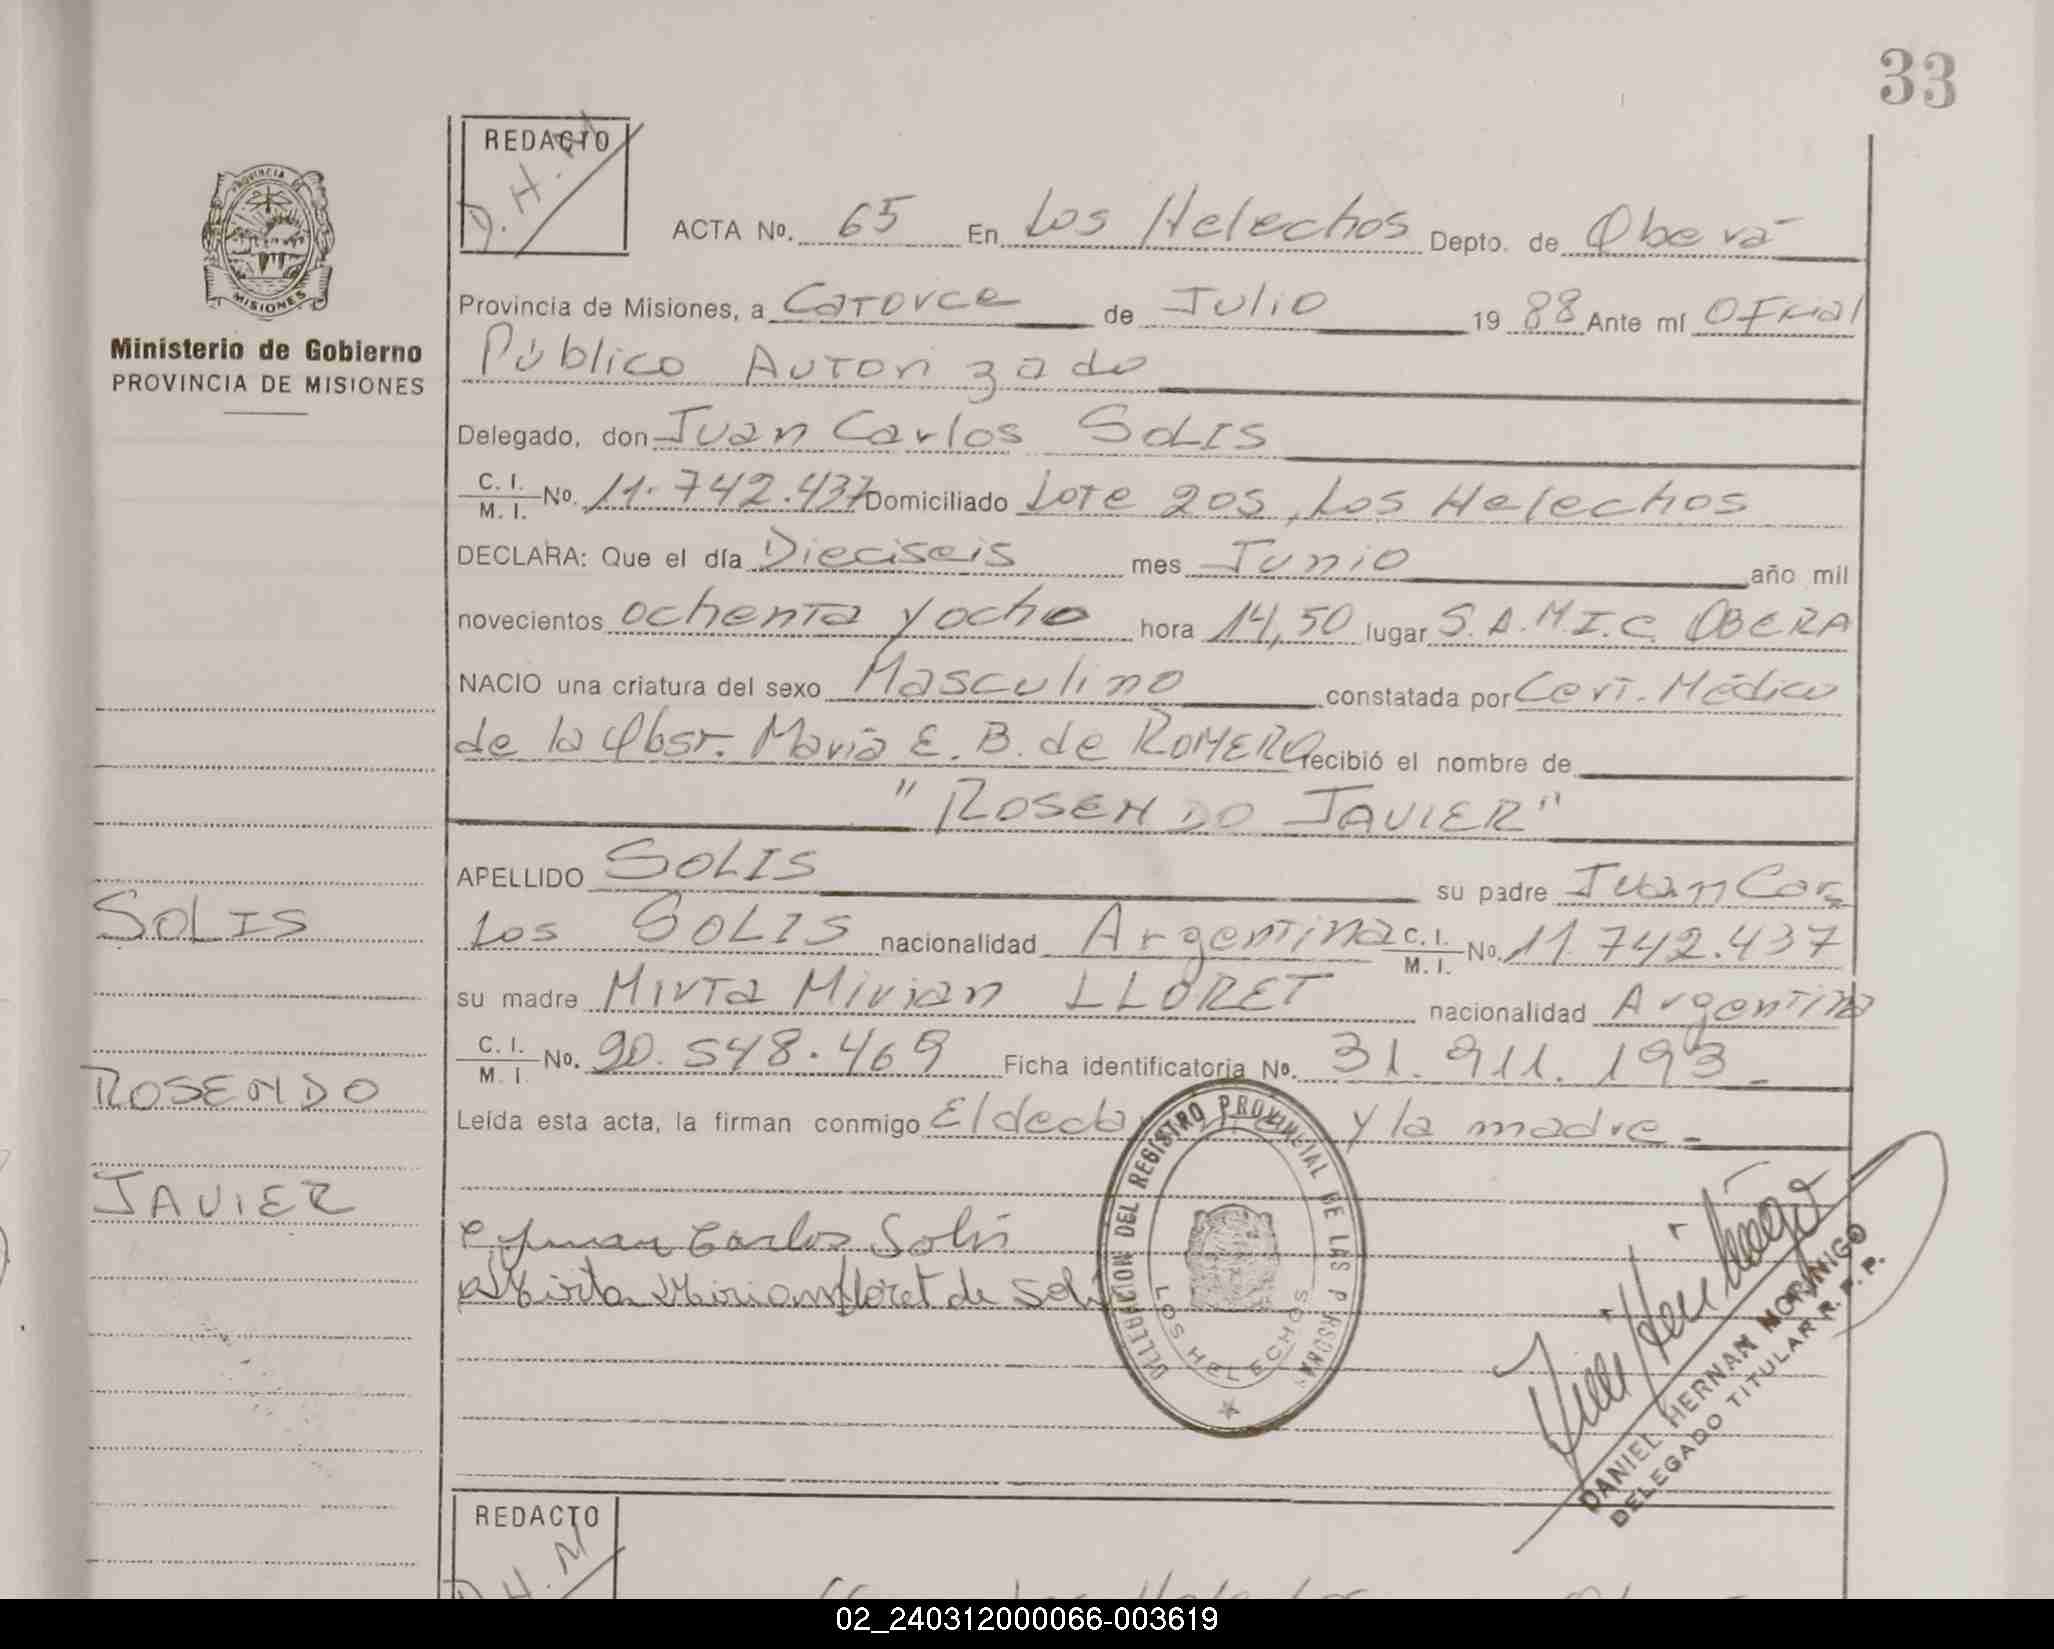 33
REDACTO
D. H. M
PROVINCIA DE
MISIONES
Ministerio de Gobierno
PROVINCIA DE MISIONES
ACTA Nº. 65 En Los Helechos Depto. de Oberá
Provincia de Misiones, a Catorce de Julio 19 88 Ante mí Oficial
Público Autorizado
Delegado, don Juan Carlos SOLIS
C. I. / M. I. Nº. 11.742.437 Domiciliado Lote 205, Los Helechos
DECLARA: Que el día Dieciseis mes Junio año mil
novecientos ochenta y ocho hora 14,50 lugar S.A.M.I.C. OBERA
NACIO una criatura del sexo Masculino constatada por Cert. Médico
de la Obst. María E. B. de ROMERO recibió el nombre de
"ROSENDO JAVIER"
APELLIDO SOLIS su padre Juan Car=
los SOLIS nacionalidad Argentina C. I. / M. I. Nº. 11.742.437
su madre Mirta Mirian LLORET nacionalidad Argentina
C. I. / M. I. Nº. 90.548.469 Ficha identificatoria Nº. 31.911.193.-
Leída esta acta, la firman conmigo El declarante y la madre.-
SOLIS
ROSENDO
JAVIER
Juan Carlos Solis
Mirta Mirian Lloret de Solis
DELEGACION DEL REGISTRO PROVINCIAL DE LAS PERSONAS
LOS HELECHOS
DANIEL HERNAN MORINIGO
DELEGADO TITULAR R. P. P.
REDACTO
D. H. M
02_240312000066-003619